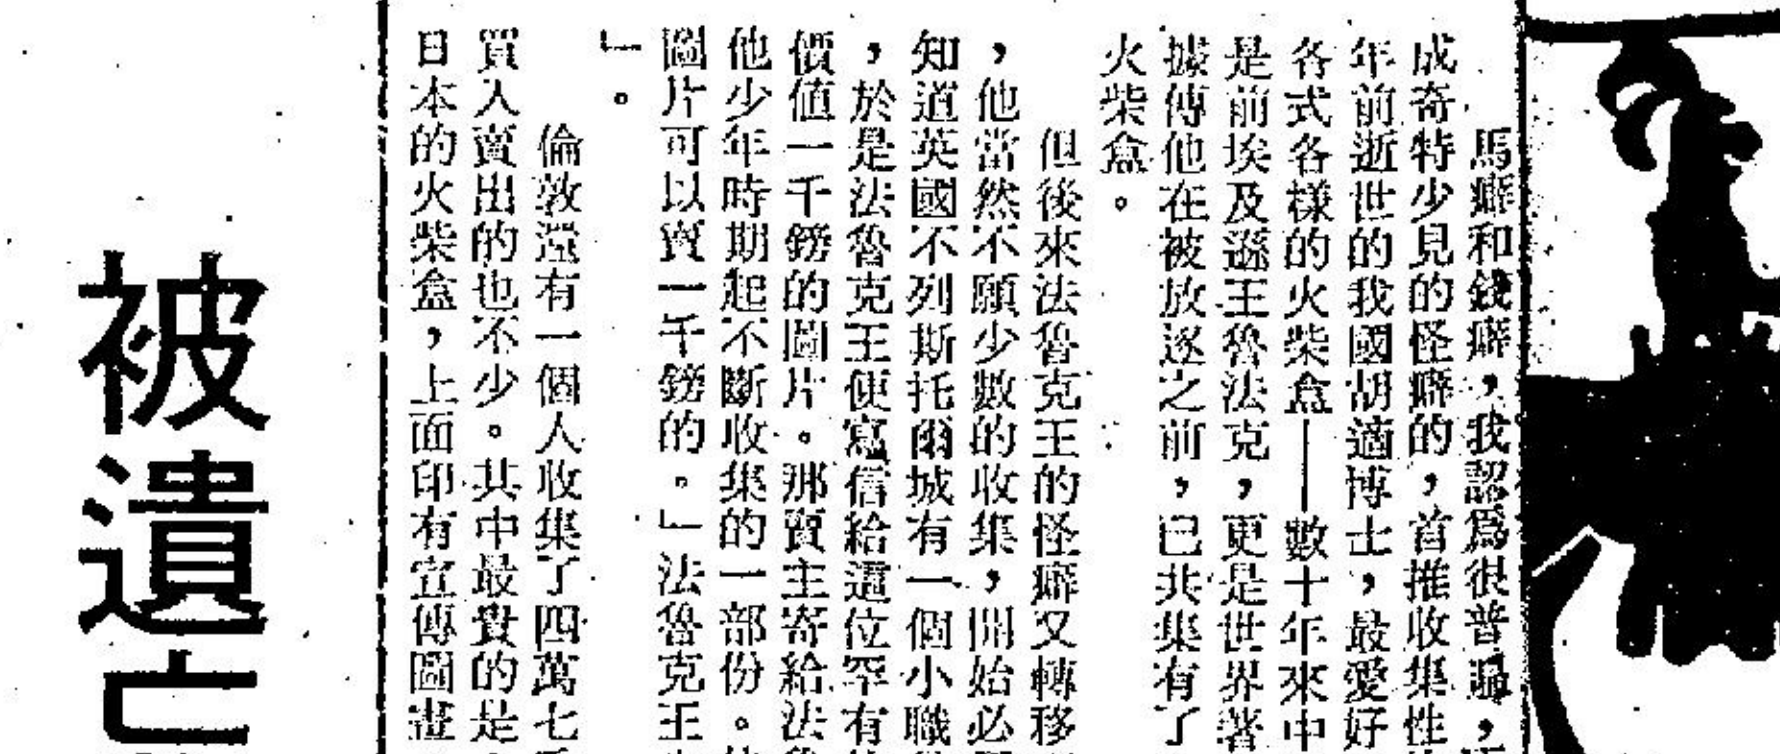 馬癖和錢癖,我認為很普遍,
成奇特少見的怪癖的,首推收集性
年前逝世的我國胡適博士,最愛好
各式各樣的火柴盒——數十年來中
是前埃及遜王魯法克,更是世界著
據傳他在被放逐之前,已共集有了
火柴盒。
但後來法魯克王的怪癖又轉移
,他當然不願少數的收集,開始必
知道英國不列斯托爾城有一個小職
,於是法魯克王便寫信給這位罕有
價值一千鎊的圖片。那賣主寄給法
他少年時期起不斷收集的一部份。
圖片可以賣一千鎊的。」法魯克王
」。
倫敦還有一個人收集了四萬七
買入賣出的也不少。共中最貴的是
日本的火柴盒,上面印有宣傳圖畫
被遺